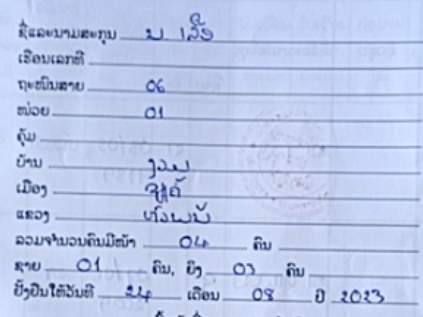 ຊື່ແລະນາມສະກຸນ ນ ເລັ່ງ
ເຮືອນເລກທີ
ຖະໜົນສາຍ 06
ໜ່ວຍ 01
ຄຸ້ມ
ບ້ານ ງວນ
ເມືອງ ຄູນຄຳ
ແຂວງ
ລວມຈຳນວນຄົນມີໜ້າ 04 ຄົນ
ຊາຍ 01 ຄົນ, ຍິງ 03 ຄົນ
ຢັ້ງຢືນໃຫ້ວັນທີ 24 ເດືອນ 08 ປີ 2023